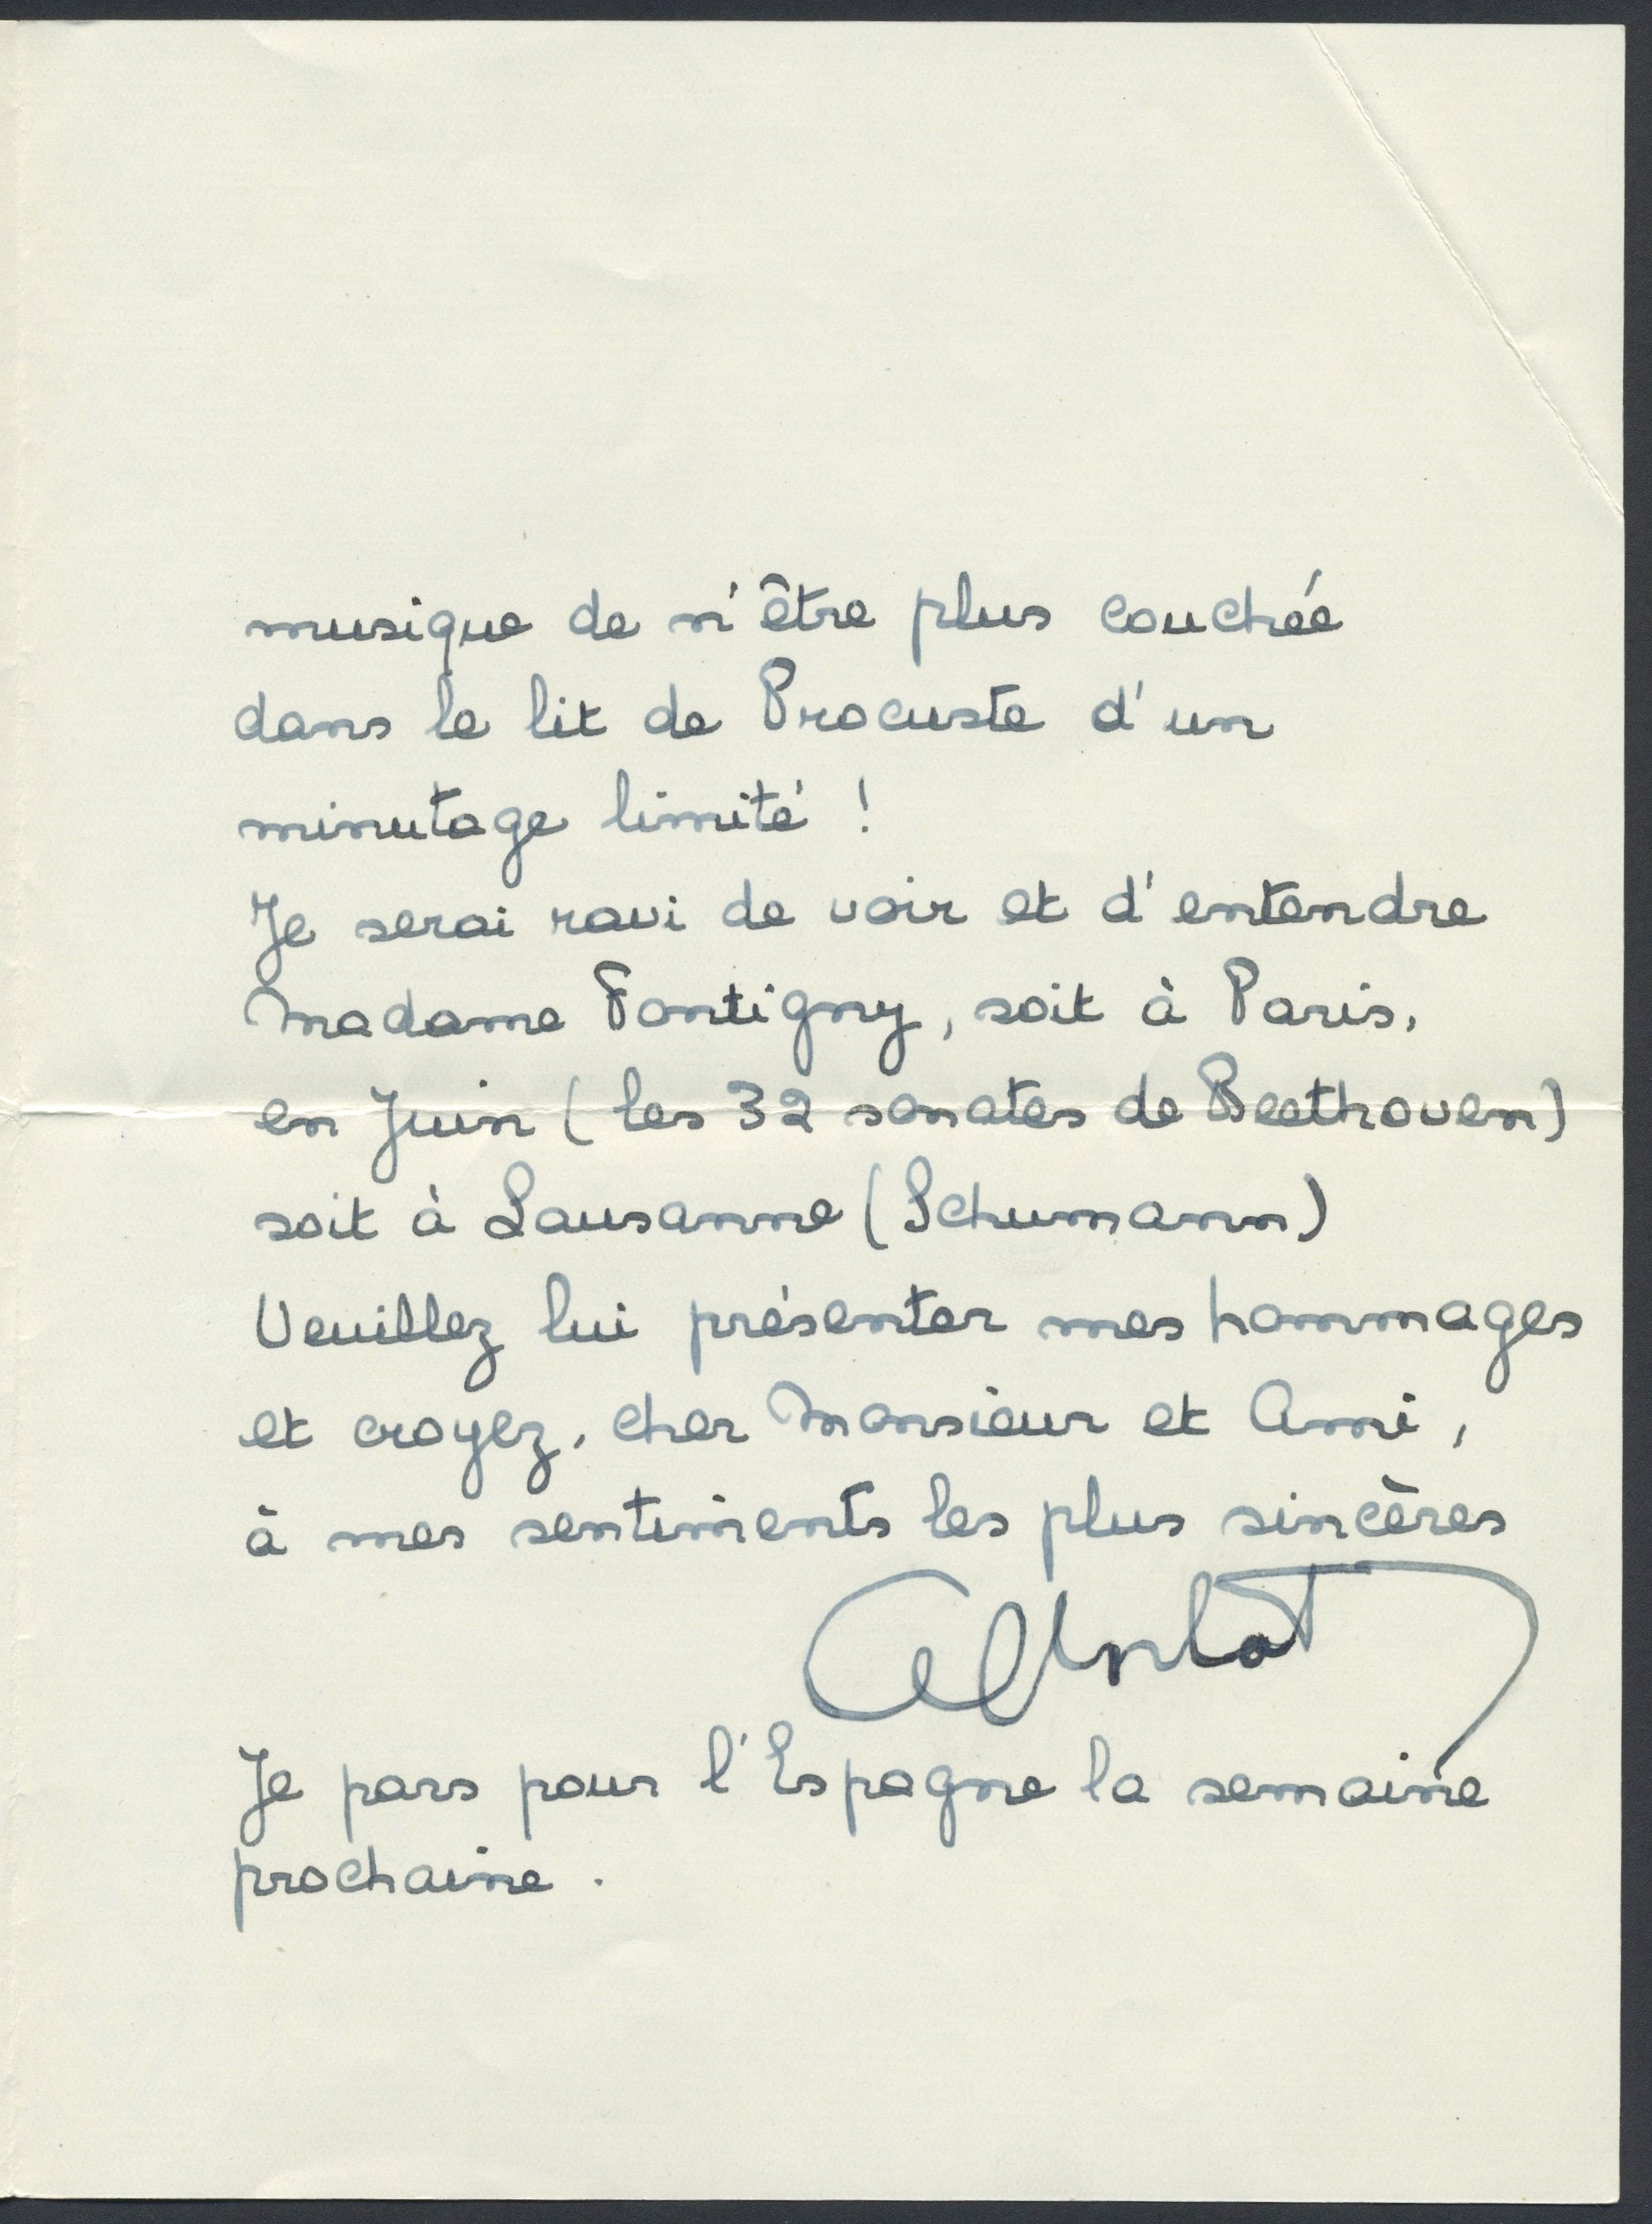 musique de n'être plus couchée
dans le lit de Procuste d'un
minutage limité !
Je serai ravi de voir et d'entendre
Madame Fontigny, soit à Paris,
en Juin (les 32 sonates de Beethoven)
soit à Lausanne (Schumann)
Veuillez lui présenter mes hommages
et croyez, cher Monsieur et Ami,
à mes sentiments les plus sincères
Je pars pour l'Espagne la semaine
prochaine.